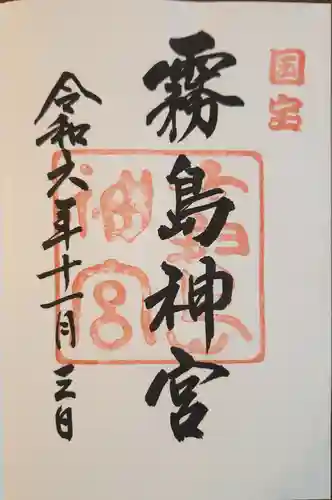 国宝
霧島神宮
令和六年十一月三日